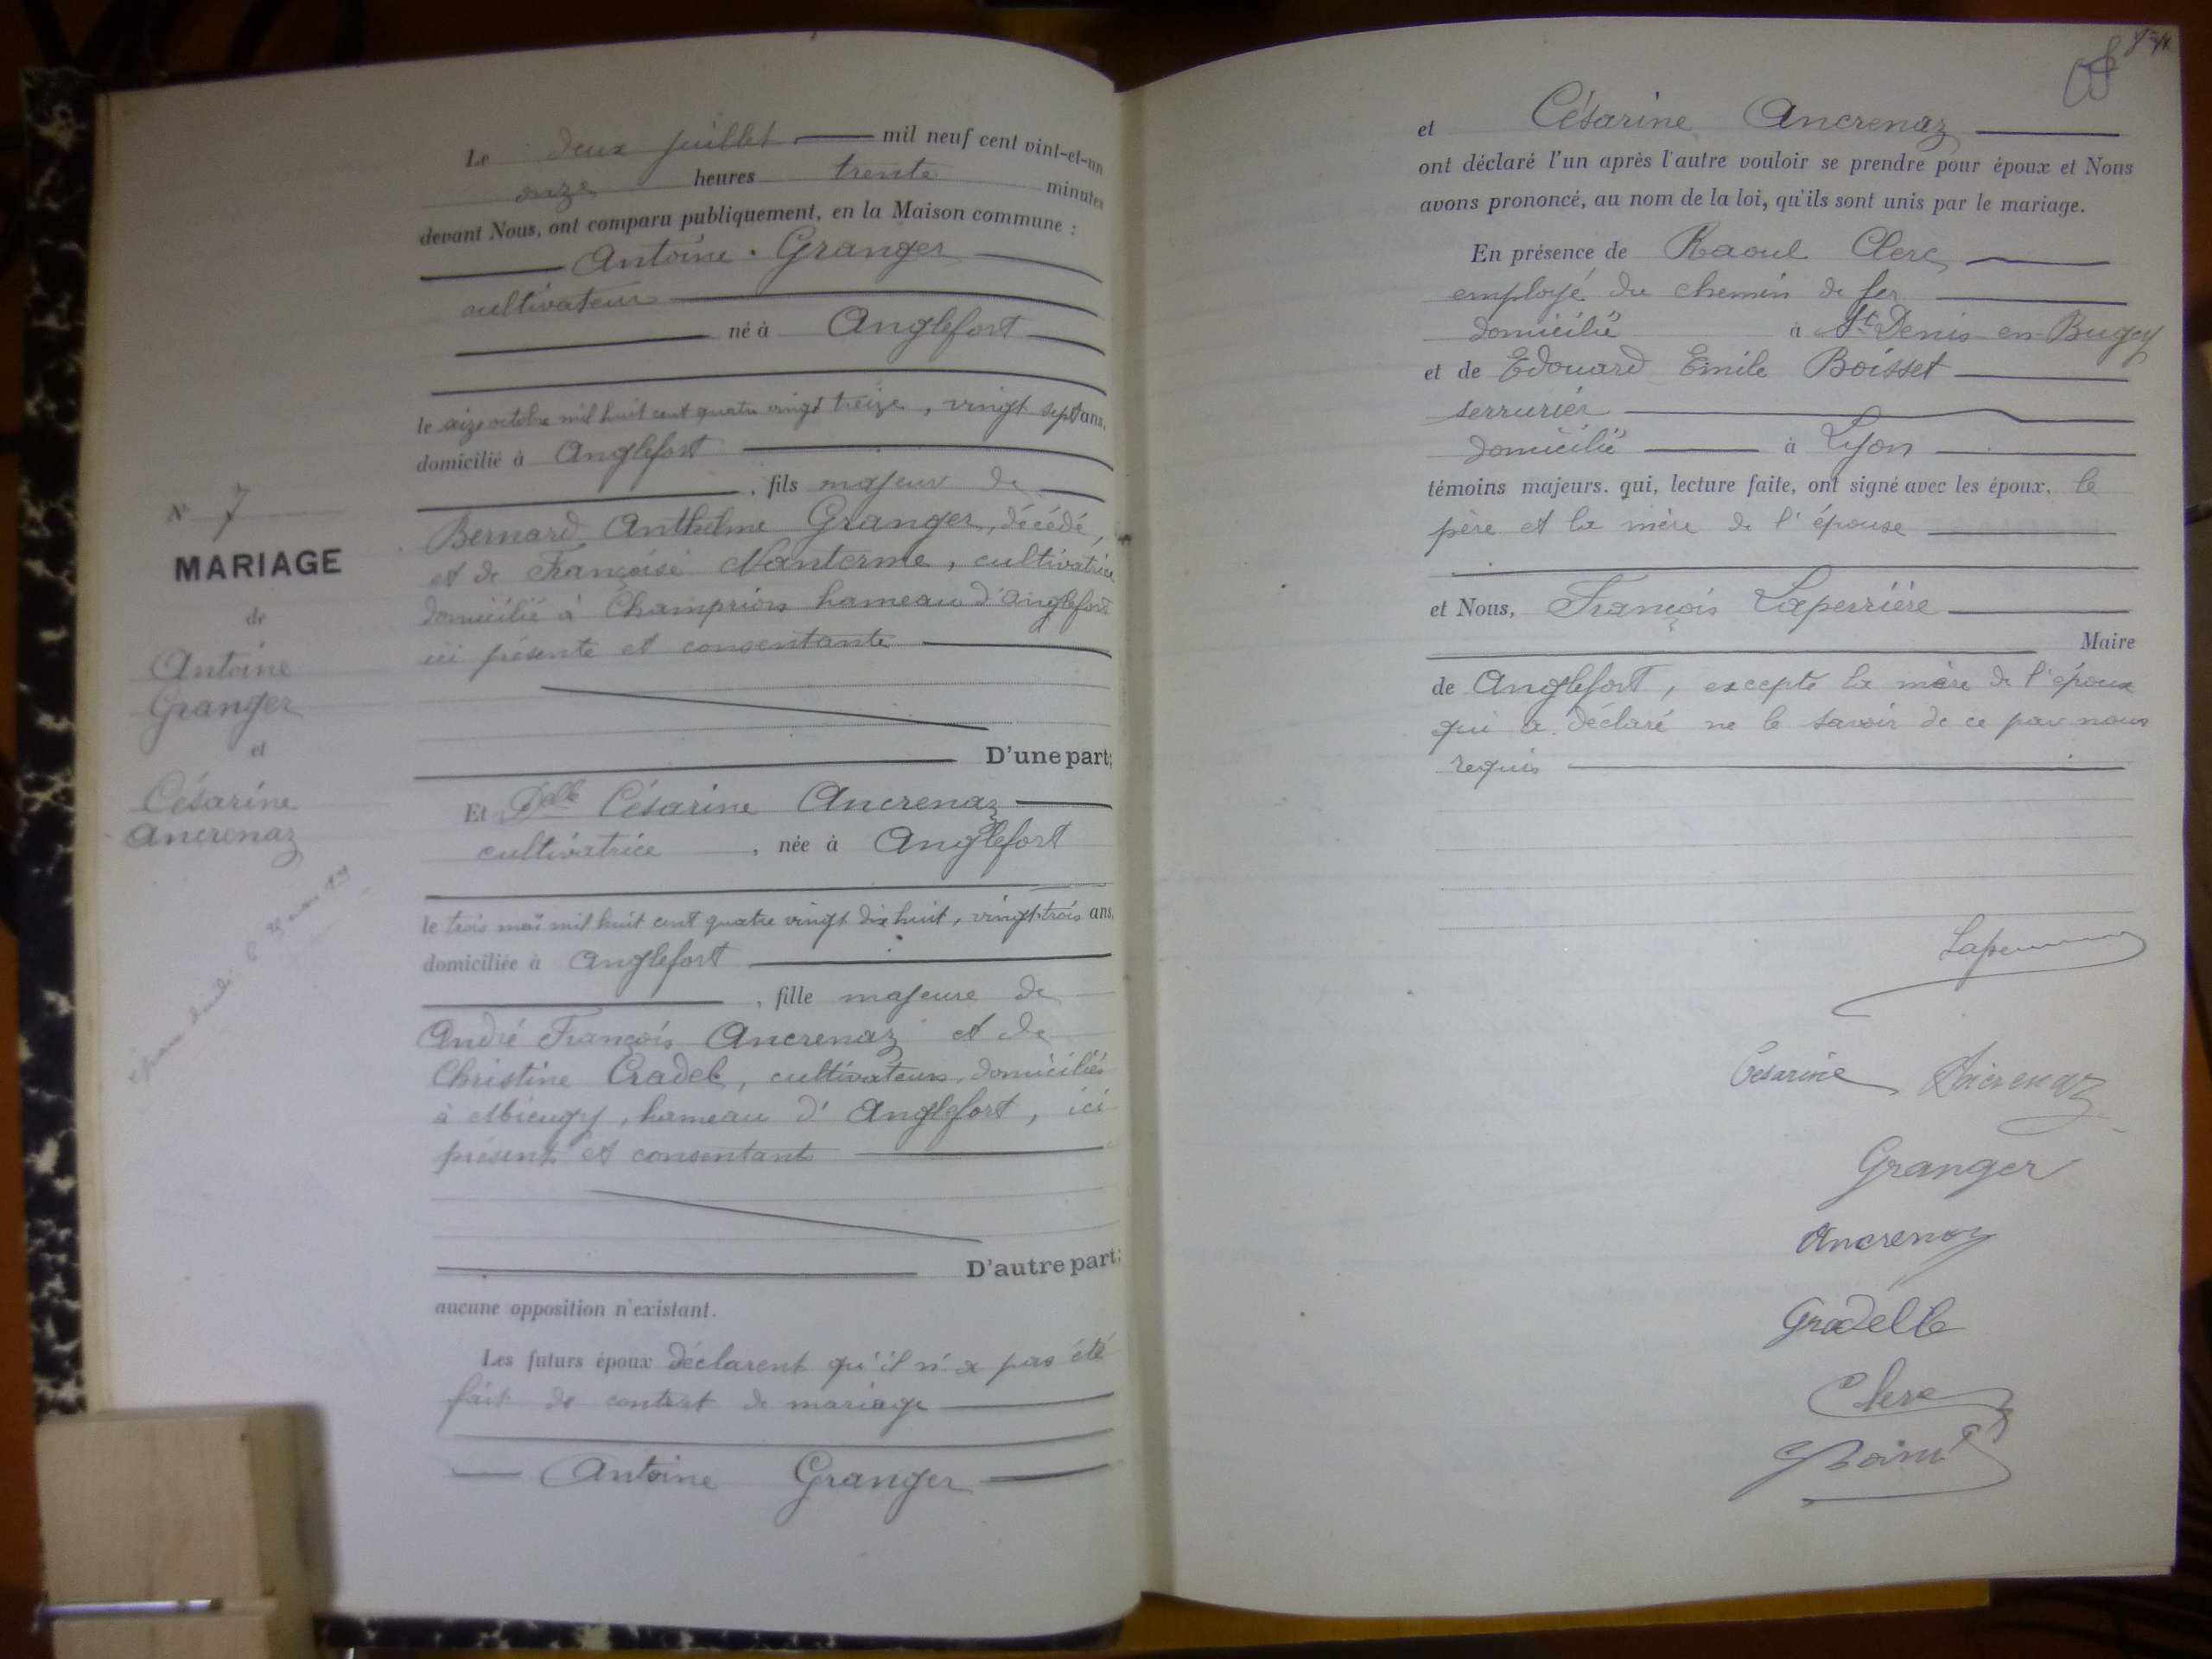 Le deux juillet mil neuf cent vint-et-un
onze heures trente minutes
devant Nous, ont comparu publiquement, en la Maison commune :
Antoine Granger
cultivateur
né à Anglefort
le seize octobre mil huit cent quatre vingt treize, vingt sept ans,
domicilié à Anglefort
, fils majeur de
Bernard Anthelme Granger, décédé,
et de Françoise Nanterme, cultivatrice
domicilié à Champrion hameau d'Anglefort
ici présente et consentante
D'une part;
N° 7
MARIAGE
de
Antoine
Granger
et
Césarine
Ancrenaz
Et Delle Césarine Ancrenaz
cultivatrice, née à Anglefort
le trois mai mil huit cent quatre vingt dix huit, vingt trois ans,
domiciliée à Anglefort
, fille majeure de
André François Ancrenaz et de
Christine Cradel, cultivateurs, domiciliés
à Mieugy, hameau d'Anglefort, ici
présents et consentants
D'autre part;
aucune opposition n'existant.
Les futurs époux déclarent qu'il n'a pas été
fait de contrat de mariage
Antoine Granger
et Césarine Ancrenaz
ont déclaré l'un après l'autre vouloir se prendre pour époux et Nous
avons prononcé, au nom de la loi, qu'ils sont unis par le mariage.
En présence de Raoul Clerc
employé du chemin de fer
domicilié à St Denis en Bugey
et de Edouard Emile Boisset
serrurier
domicilié à Lyon
témoins majeurs. qui, lecture faite, ont signé avec les époux, le
père et la mère de l'épouse
et Nous, François Laperrière
Maire
de Anglefort, excepté la mère de l'époux
qui a déclaré ne le savoir de ce par nous
requis
Césarine Ancrenaz
Granger
Ancrenaz
Gradelle
Clerc